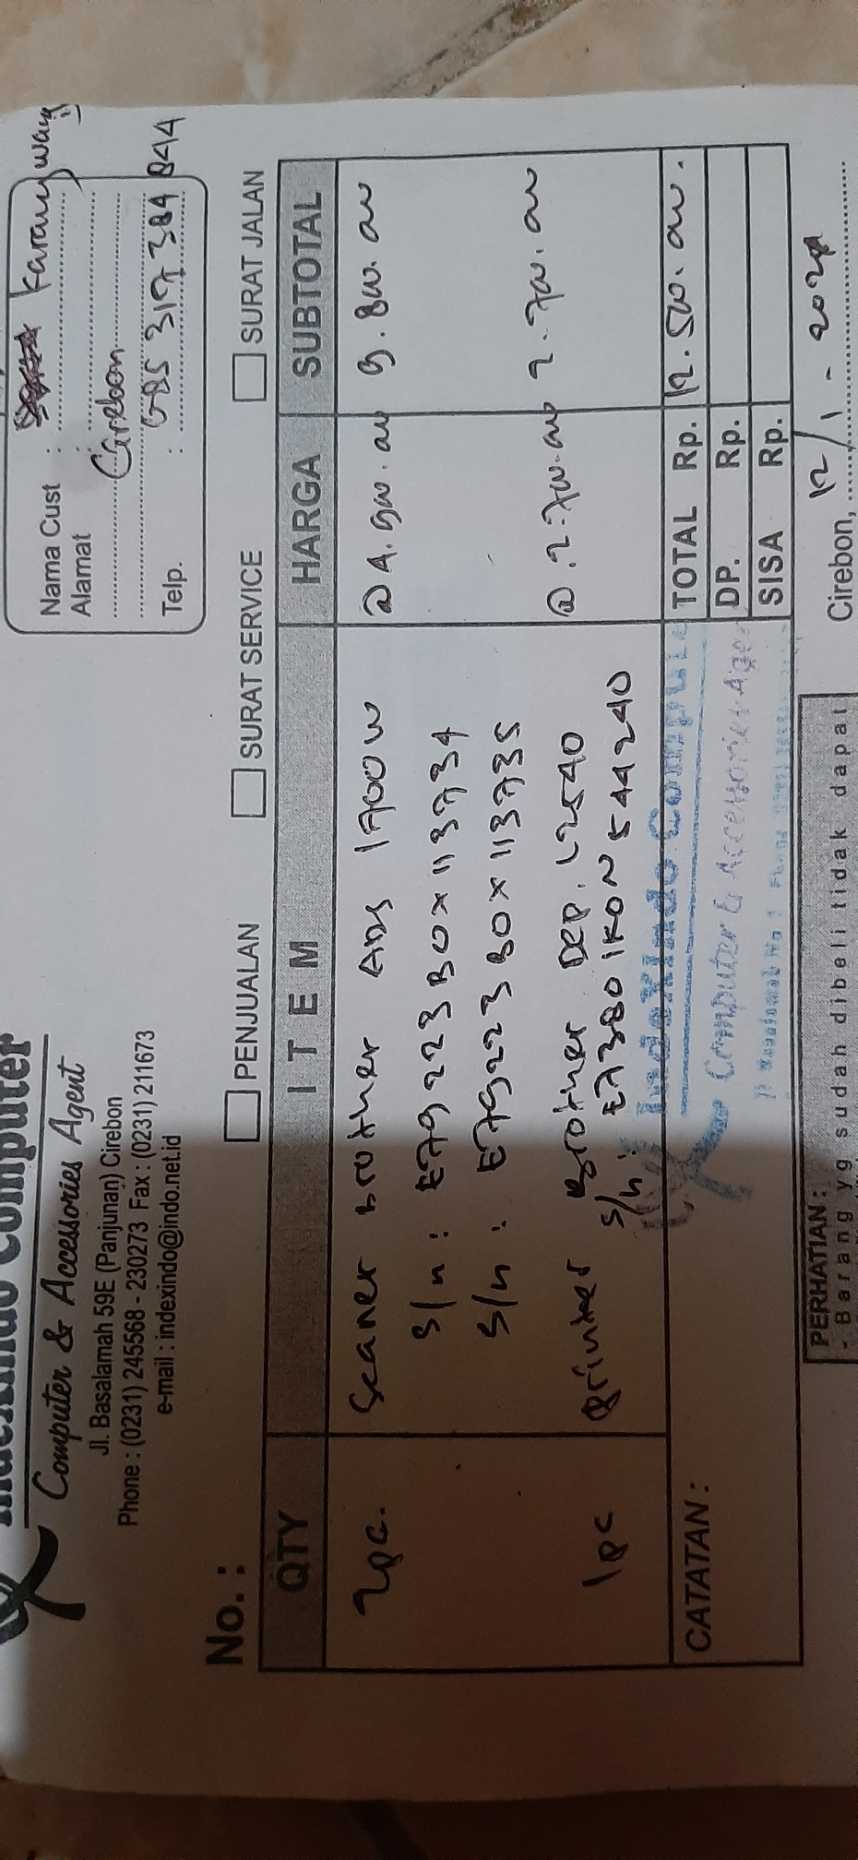 Indexindo Computer
Computer & Accessories Agent
Jl. Basalamah 59E (Panjunan) Cirebon
Phone : (0231) 245568 - 230273 Fax : (0231) 211673
e-mail : indexindo@indo.net.id
Nama Cust : Karangwangi
Alamat :
Cirebon
Telp. : 085 317 384 844
No. :
PENJUALAN SURAT SERVICE SURAT JALAN
QTY ITEM HARGA SUBTOTAL
2pc. Scaner Brother ADS 1700W @ 4.900.000 9.800.000
S/n : E79223B0X113734
S/n : E79223B0X113735
1pc printer Brother DCP. L2540 @ 2.700.000 2.700.000
S/n : E73801K0N544240
CATATAN :
Indexindo Computer
Computer & Accessories Agent
TOTAL Rp. 12.500.000.
DP. Rp.
SISA Rp.
Cirebon, 12/1 - 2021
PERHATIAN :
- Barang yg sudah dibeli tidak dapat